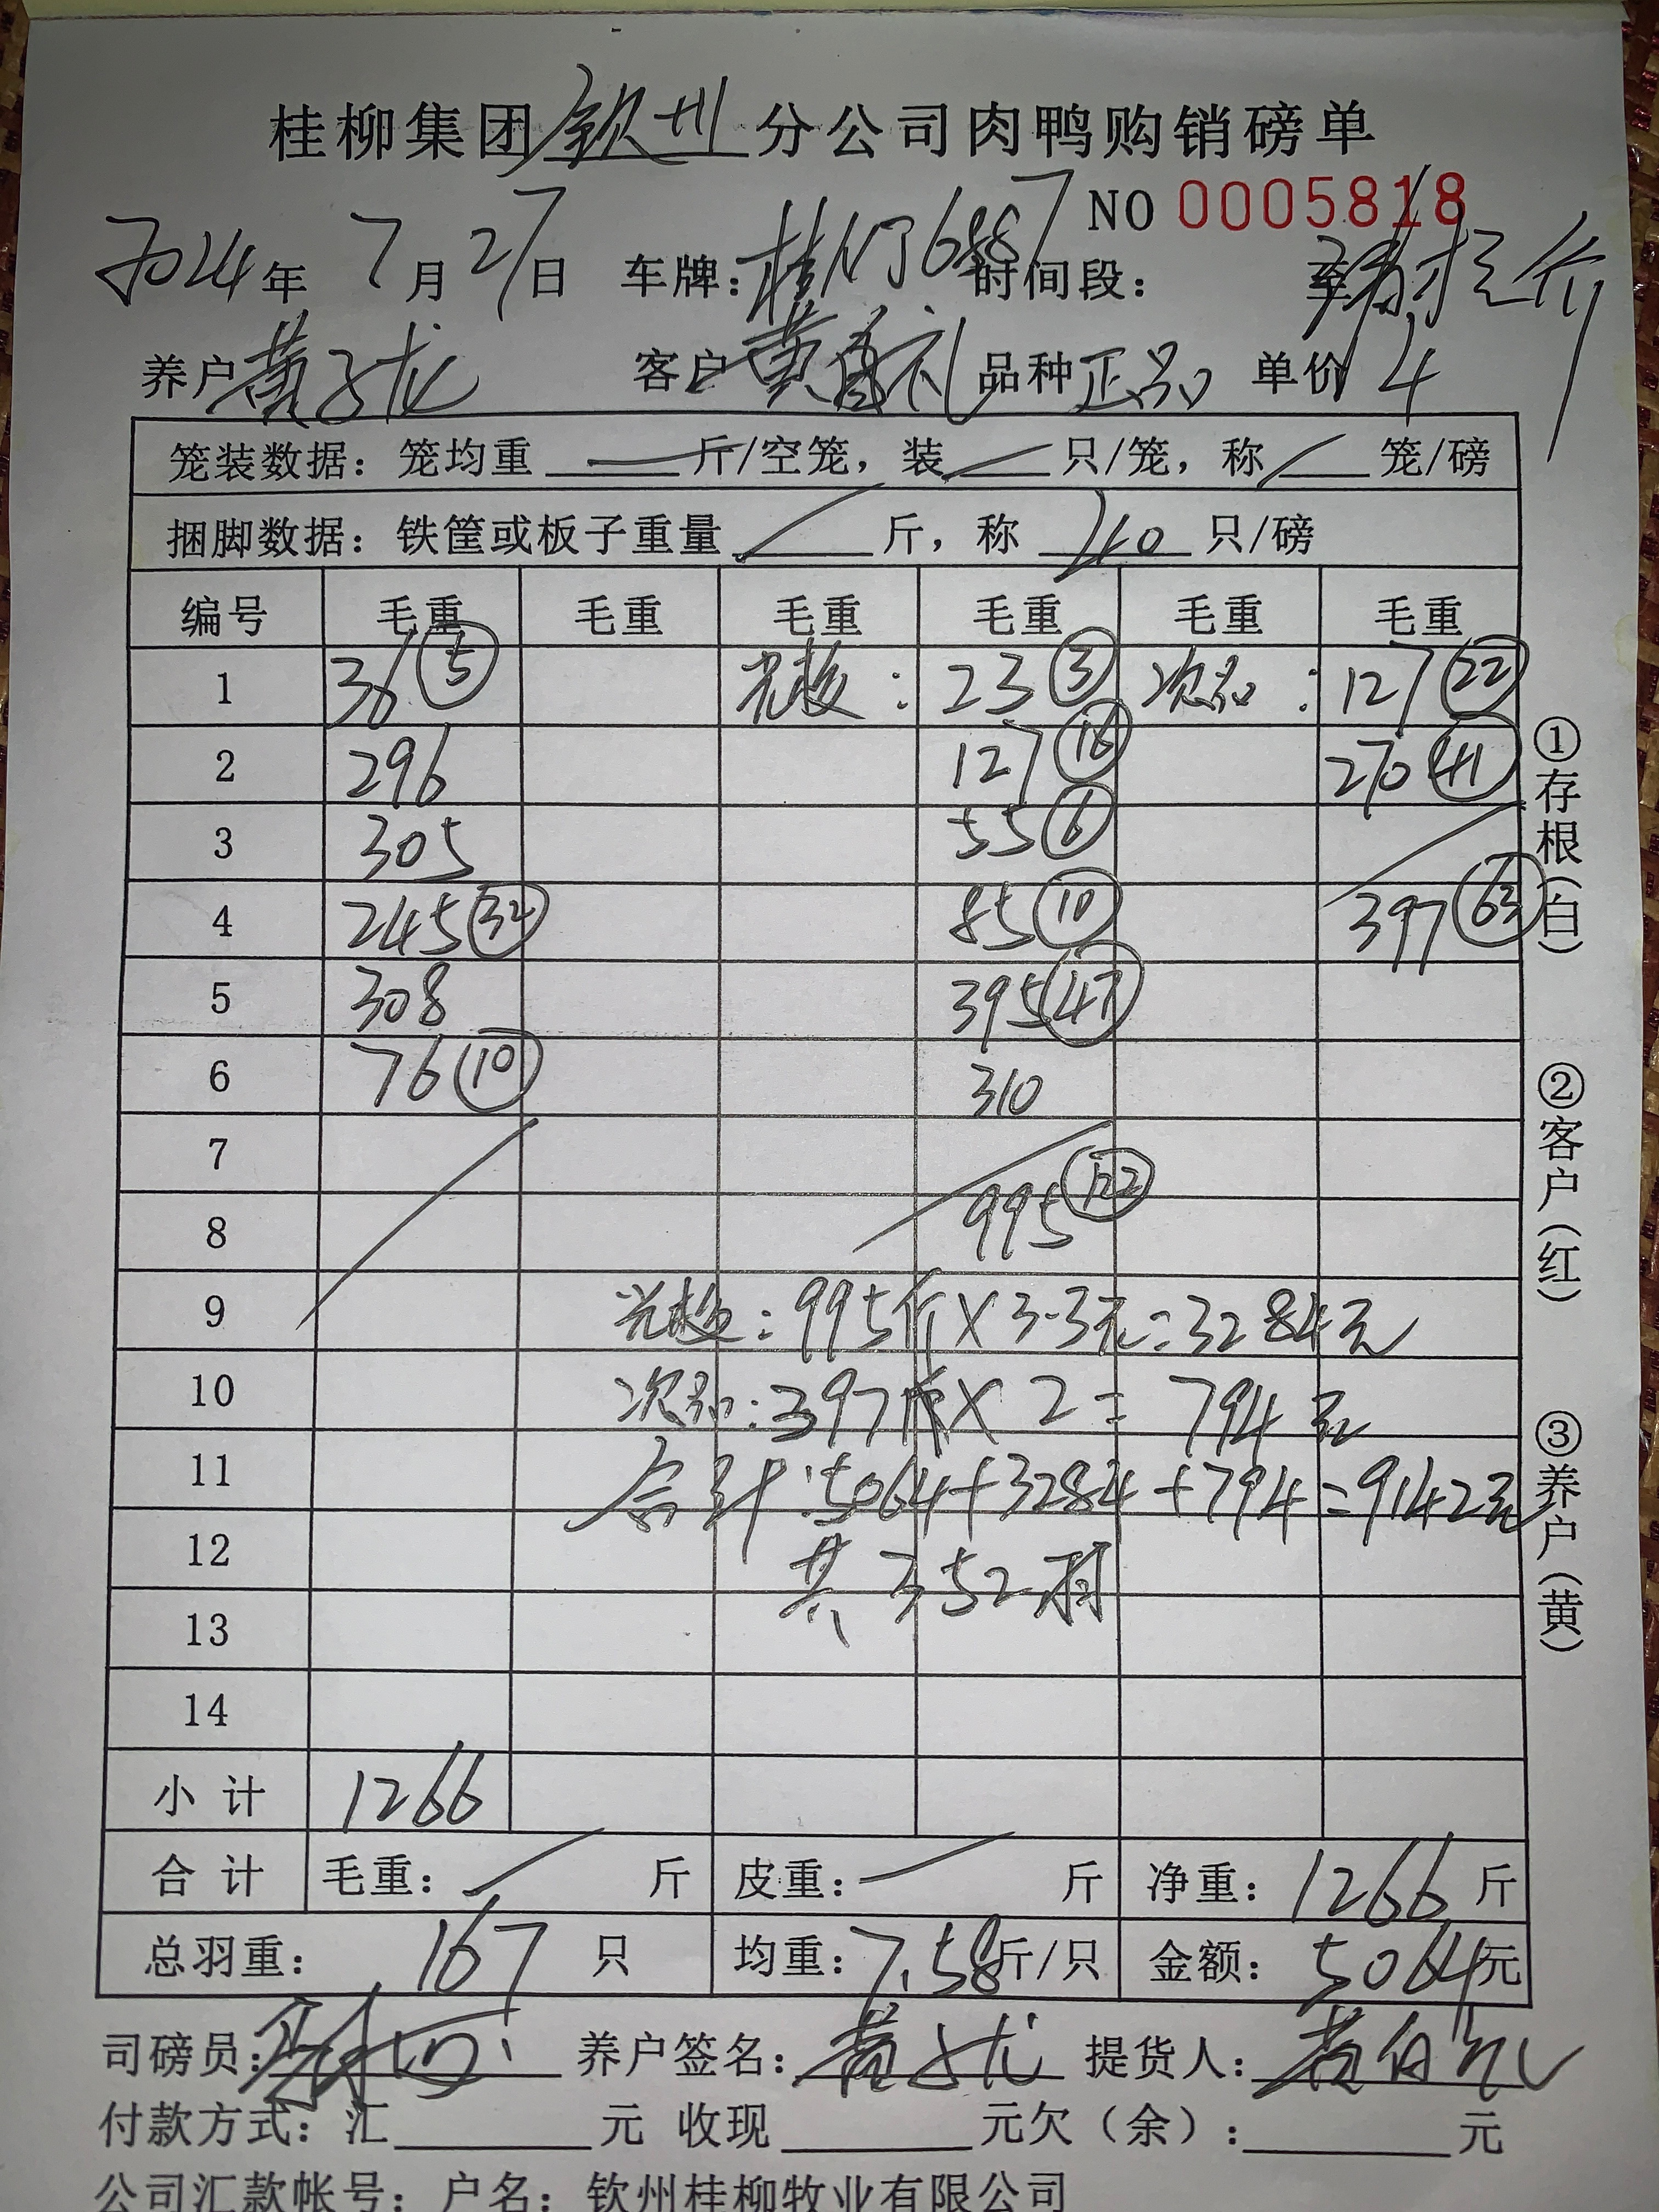 桂柳集团钦州分公司肉鸭购销磅单
NO 0005818
2024年 7月27日 车牌：桂N 时间段： 至
养户 黄子龙 客户 黄 礼 品种 正品 单价 4
笼装数据：笼均重 斤/空笼，装 只/笼，称 笼/磅
捆脚数据：铁筐或板子重量 斤，称 40 只/磅
编号 毛重 毛重 毛重 毛重 毛重 毛重
1 36 ⑤ : 23 ③ 次品 : 127 ㉒
2 296 127 ⑯ 270 ㊶
3 305 55 ⑥
4 245 ㉜ 85 ⑩ 397 (63)
5 308 395 ㊼
6 76 ⑩ 310
7
8 995 (122)
9 : 995斤×3.3元=3284元
10 次品:397斤×2=794元
11 合计:5064+3284+794=9142元
12 共352羽
13
14
小 计 1266
合 计 毛重： 斤 皮重： 斤 净重：1266斤
总羽重：167 只 均重：7.58斤/只 金额：5064元
司磅员： 养户签名：黄子龙 提货人：黄 礼
付款方式：汇 元 收现 元欠（余）： 元
公司汇款帐号：户名：钦州桂柳牧业有限公司
①存根（白）
②客户（红）
③养户（黄）